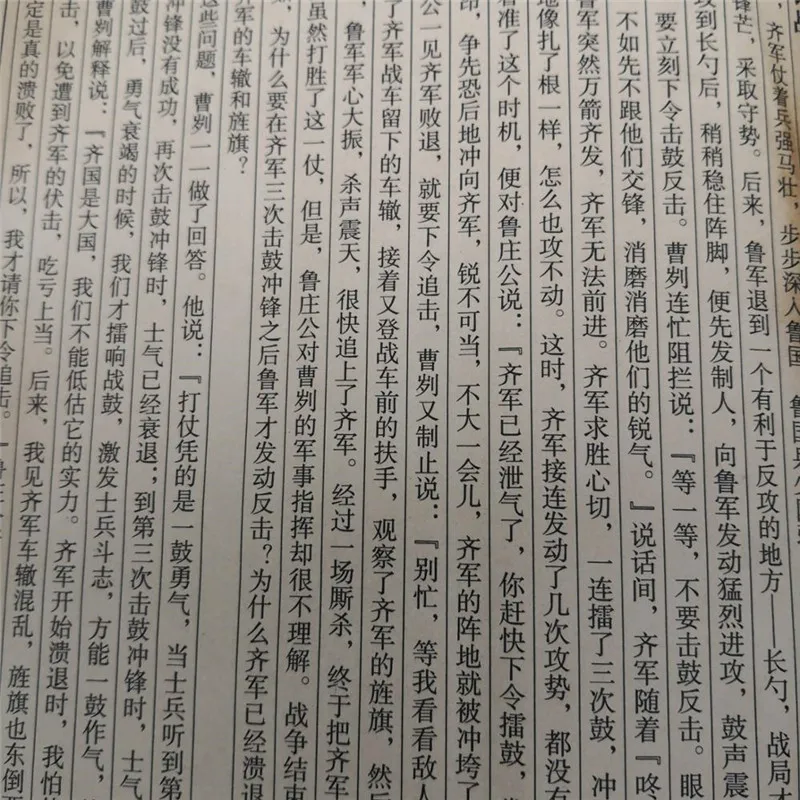 齐军仗着兵强马壮，步步深入鲁国 鲁国兵
锋芒，采取守势。后来，鲁军退到一个有利于反攻的地方——长勺，战局才
攻到长勺后，稍稍稳住阵脚，便先发制人，向鲁军发动猛烈进攻，鼓声震
要立刻下令击鼓反击。曹刿连忙阻拦说：『等一等，不要击鼓反击。眼
不如先不跟他们交锋，消磨消磨他们的锐气。』说话间，齐军随着『咚
鲁军突然万箭齐发，齐军无法前进。齐军求胜心切，一连擂了三次鼓，冲
地像扎了根一样，怎么也攻不动。这时，齐军接连发动了几次攻势，都没有
看准了这个时机，便对鲁庄公说：『齐军已经泄气了，你赶快下令擂鼓，
昂，争先恐后地冲向齐军，锐不可当，不大一会儿，齐军的阵地就被冲垮了
公一见齐军败退，就要下令追击，曹刿又制止说：『别忙，等我看看敌人
了齐军战车留下的车辙，接着又登战车前的扶手，观察了齐军的旌旗，然后
鲁军军心大振，杀声震天，很快追上了齐军。经过一场厮杀，终于把齐军
虽然打胜了这一仗，但是，鲁庄公对曹刿的军事指挥却很不理解。战争结束
，为什么要在齐军三次击鼓冲锋之后鲁军才发动反击？为什么齐军已经溃退
齐军的车辙和旌旗？
这些问题，曹刿一一做了回答。他说：『打仗凭的是一鼓勇气，当士兵听到第
冲锋没有成功，再次击鼓冲锋时，士气已经衰退；到第三次击鼓冲锋时，士气
鼓过后，勇气衰竭的时候，我们才擂响战鼓，激发士兵斗志，方能一鼓作气，
曹刿解释说：『齐国是大国，我们不能低估它的实力。齐军开始溃退时，我怕
击，以免遭到齐军的伏击，吃亏上当。后来，我见齐军车辙混乱，旌旗也东倒
定是真的溃败了，所以，我才请你下令追击。』